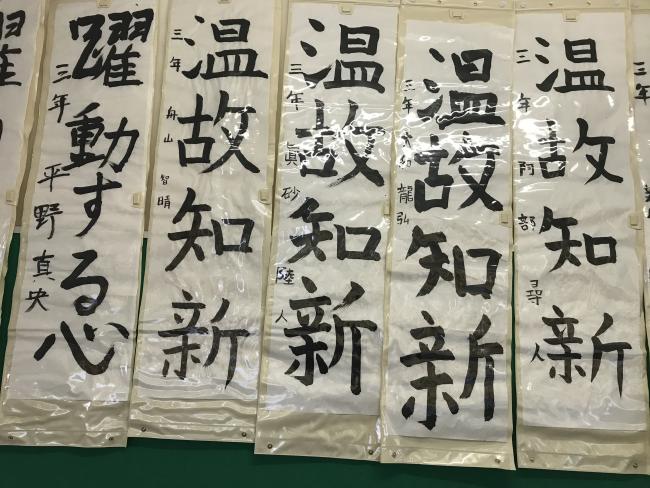 三年
温故知新
三年 阿部 尋人
温故知新
三年 龍弘
温故知新
三年 眞砂 陸人
温故知新
三年 舟山 智晴
躍動する心
三年 平野 真央